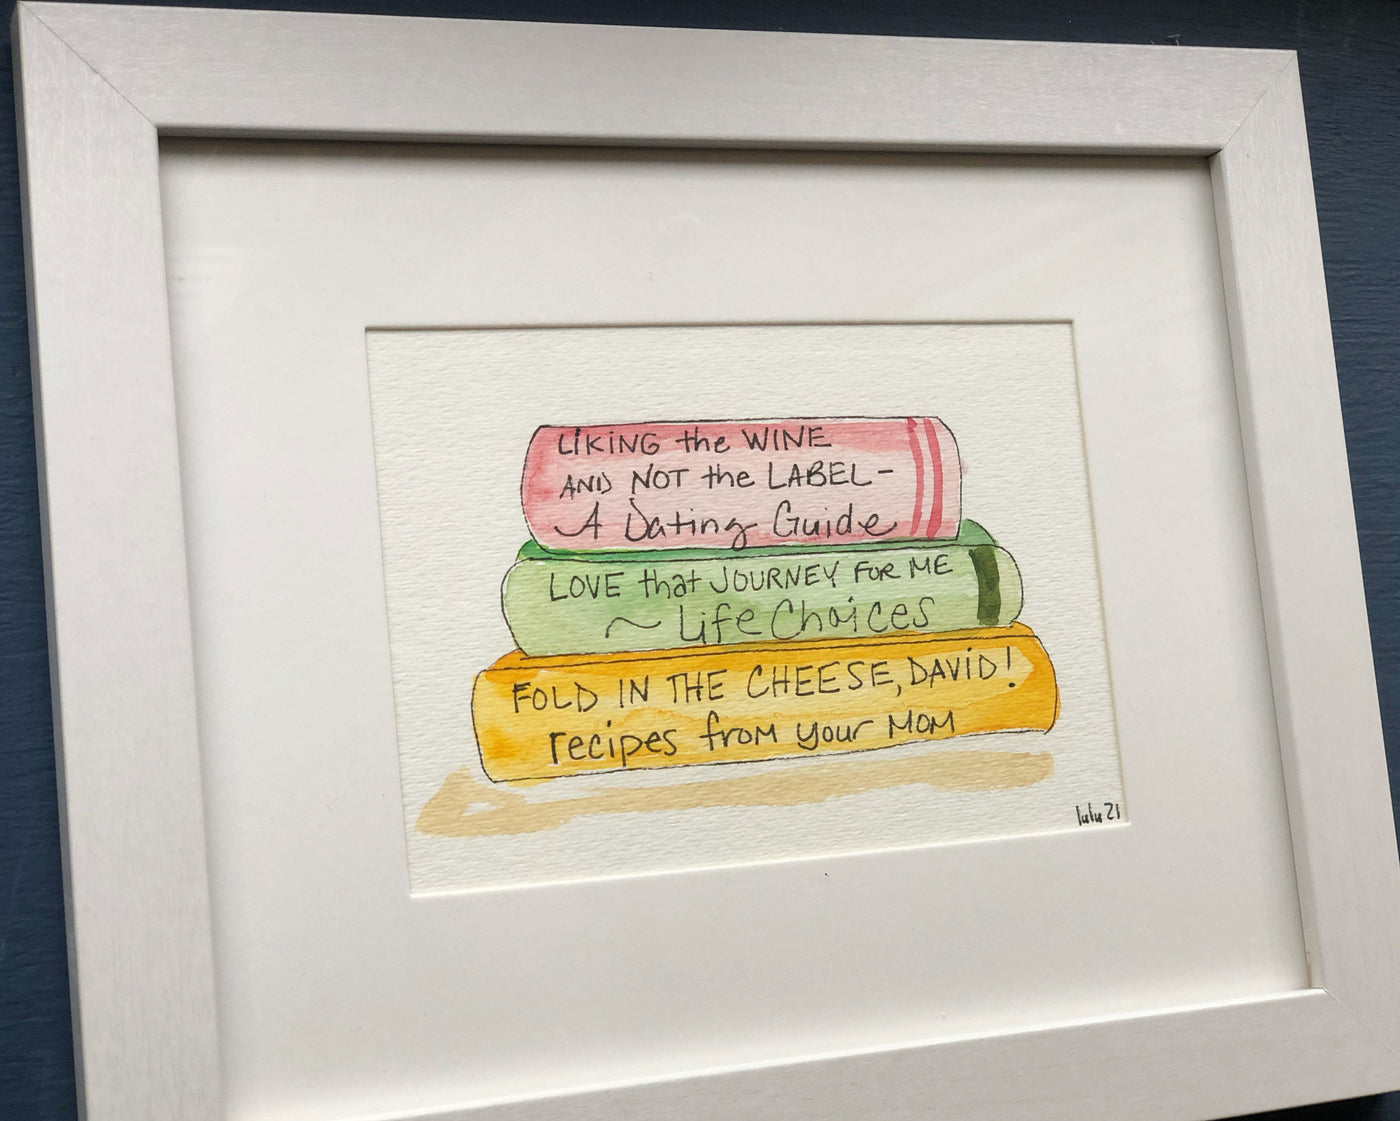 LIKING the WINE
AND NOT the LABEL -
A Dating Guide
LOVE that JOURNEY FOR ME
~ Life Choices
FOLD IN THE CHEESE, DAVID!
recipes from your MOM
lulu 21